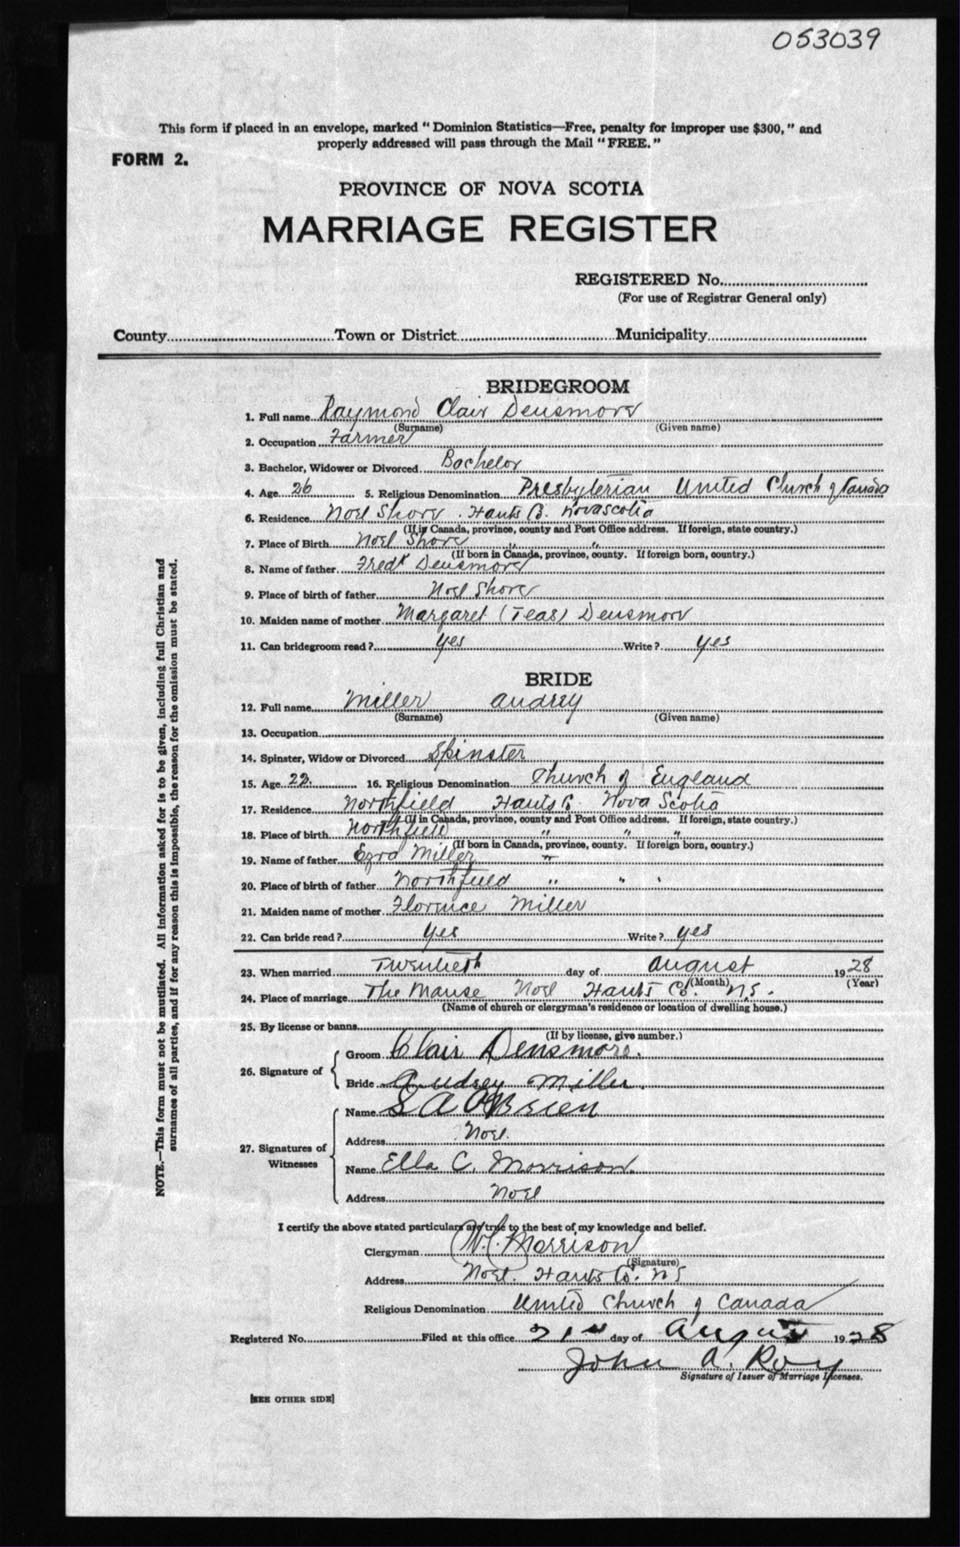 053039
This form if placed in an envelope, marked "Dominion Statistics—Free, penalty for improper use $300," and
properly addressed will pass through the Mail "FREE."
FORM 2.
PROVINCE OF NOVA SCOTIA
MARRIAGE REGISTER
REGISTERED No.
(For use of Registrar General only)
County Town or District Municipality
BRIDEGROOM
1. Full name Raymond Clair Densmore
(Surname) (Given name)
2. Occupation Farmer
3. Bachelor, Widower or Divorced Bachelor
4. Age 26 5. Religious Denomination Presbyterian United Church of Canada
6. Residence Noel Shore Hants Co. Novascotia
(If in Canada, province, county and Post Office address. If foreign, state country.)
7. Place of Birth Noel Shore " "
(If born in Canada, province, county. If foreign born, country.)
8. Name of father Fred Densmore
9. Place of birth of father Noel Shore
10. Maiden name of mother Margaret (Teas) Densmore
11. Can bridegroom read? yes Write? yes
BRIDE
12. Full name Miller Audrey
(Surname) (Given name)
13. Occupation
14. Spinster, Widow or Divorced Spinster
15. Age 22. 16. Religious Denomination Church of England
17. Residence Northfield Hants Co Nova Scotia
(If in Canada, province, county and Post Office address. If foreign, state country.)
18. Place of birth Northfield " " "
(If born in Canada, province, county. If foreign born, country.)
19. Name of father Ezra Miller "
20. Place of birth of father Northfield " " "
21. Maiden name of mother Florence Miller
22. Can bride read? yes Write? yes
23. When married Twentieth day of August 1928
(Month) (Year)
24. Place of marriage The Manse Noel Hants Co. N.S.
(Name of church or clergyman's residence or location of dwelling house.)
25. By license or banns
(If by license, give number.)
26. Signature of
Groom Clair Densmore.
Bride Audrey Miller.
27. Signatures of Witnesses
Name S A O'Brien
Address Noel.
Name Ella C. Morrison.
Address Noel
I certify the above stated particulars are true to the best of my knowledge and belief.
Clergyman Morrison
(Signature)
Address Noel. Hants Co. NS
Religious Denomination United Church of Canada
Registered No. Filed at this office 21st day of August 1928
John A. Roy
Signature of Issuer of Marriage Licenses.
[SEE OTHER SIDE]
NOTE.—This form must not be mutilated. All information asked for is to be given, including full Christian and
surnames of all parties, and if for any reason this is impossible, the reason for the omission must be stated.